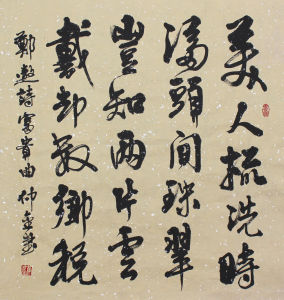 美人梳洗時
滿頭間珠翠
豈知兩片雲
戴却數鄉税
鄭遨詩富貴曲 仲